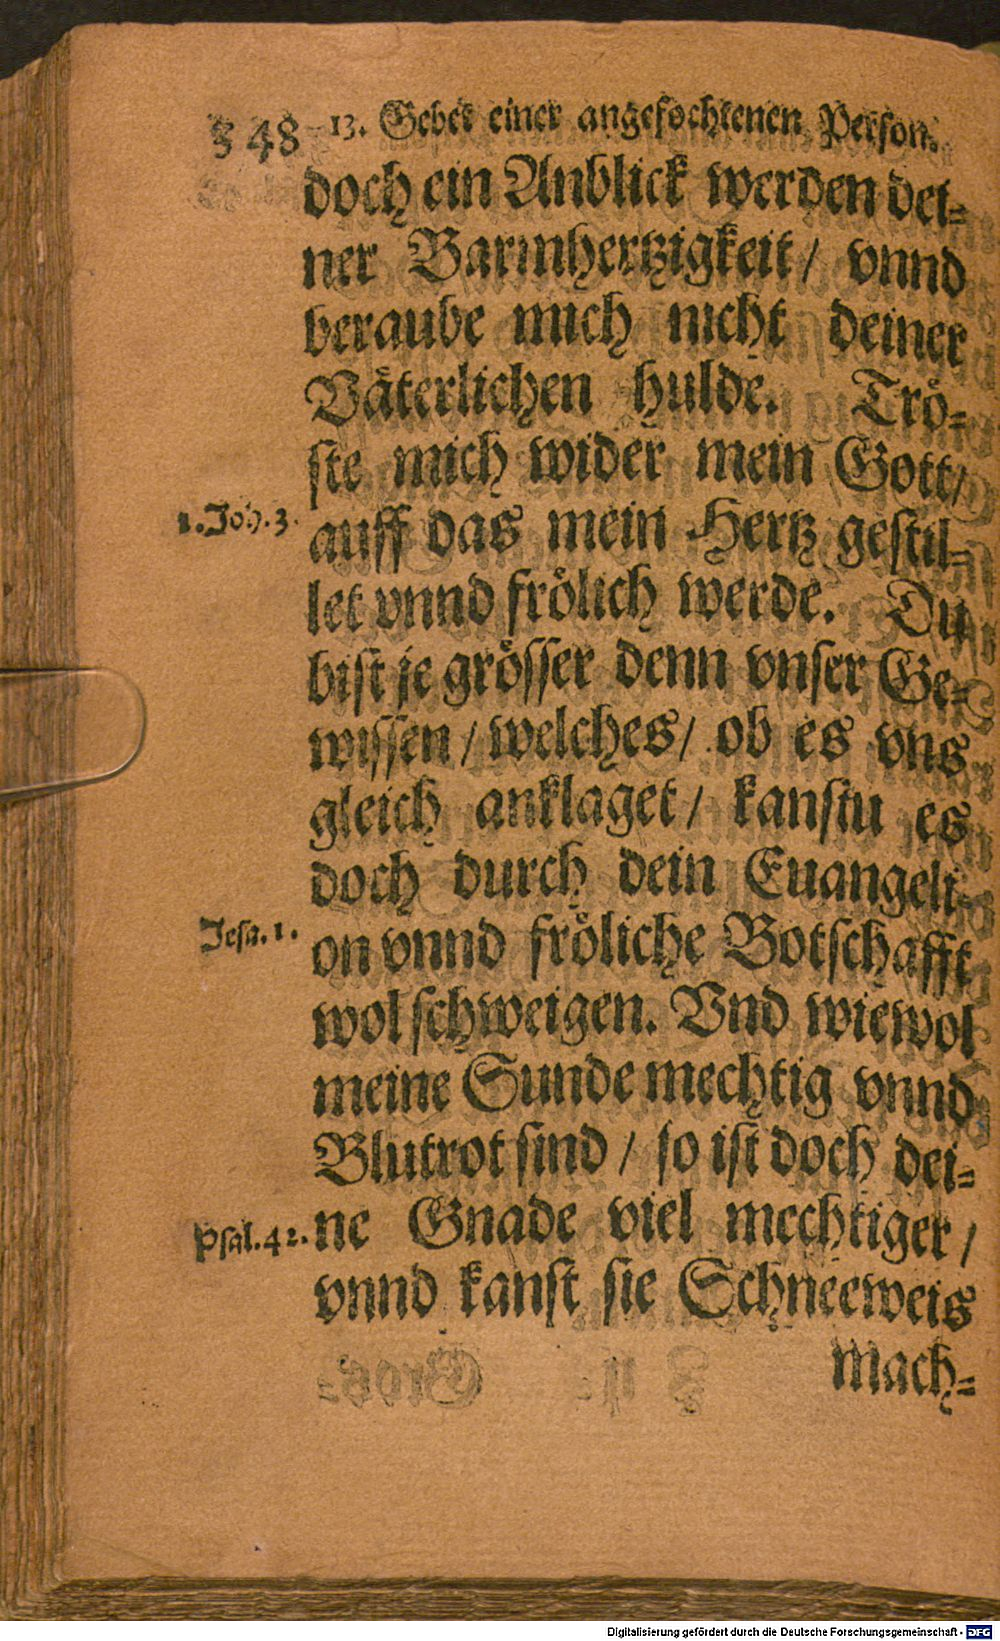 348 13. Gebet einer angefochtenen Person.
doch ein Anblick werden dei-
ner Barmhertzigkeit / vnnd
beraube mich nicht deiner
Väterlichen hulde. Trö-
ste mich wider mein Gott /
1. Joh. 3.
auff das mein Hertz gestil-
let vnnd frölich werde. Du
bist je grösser denn vnser Ge-
wissen / welches / ob es vns
gleich anklaget / kanstu es
doch durch dein Euangeli-
Jesa. 1.
on vnnd fröliche Botschafft
wol schweigen. Vnd wiewol
meine Sunde mechtig vnnd
Blutrot sind / so ist doch dei-
Psal. 42.
ne Gnade viel mechtiger /
vnnd kanst sie Schneeweis
mach-
Digitalisierung gefördert durch die Deutsche Forschungsgemeinschaft - DFG